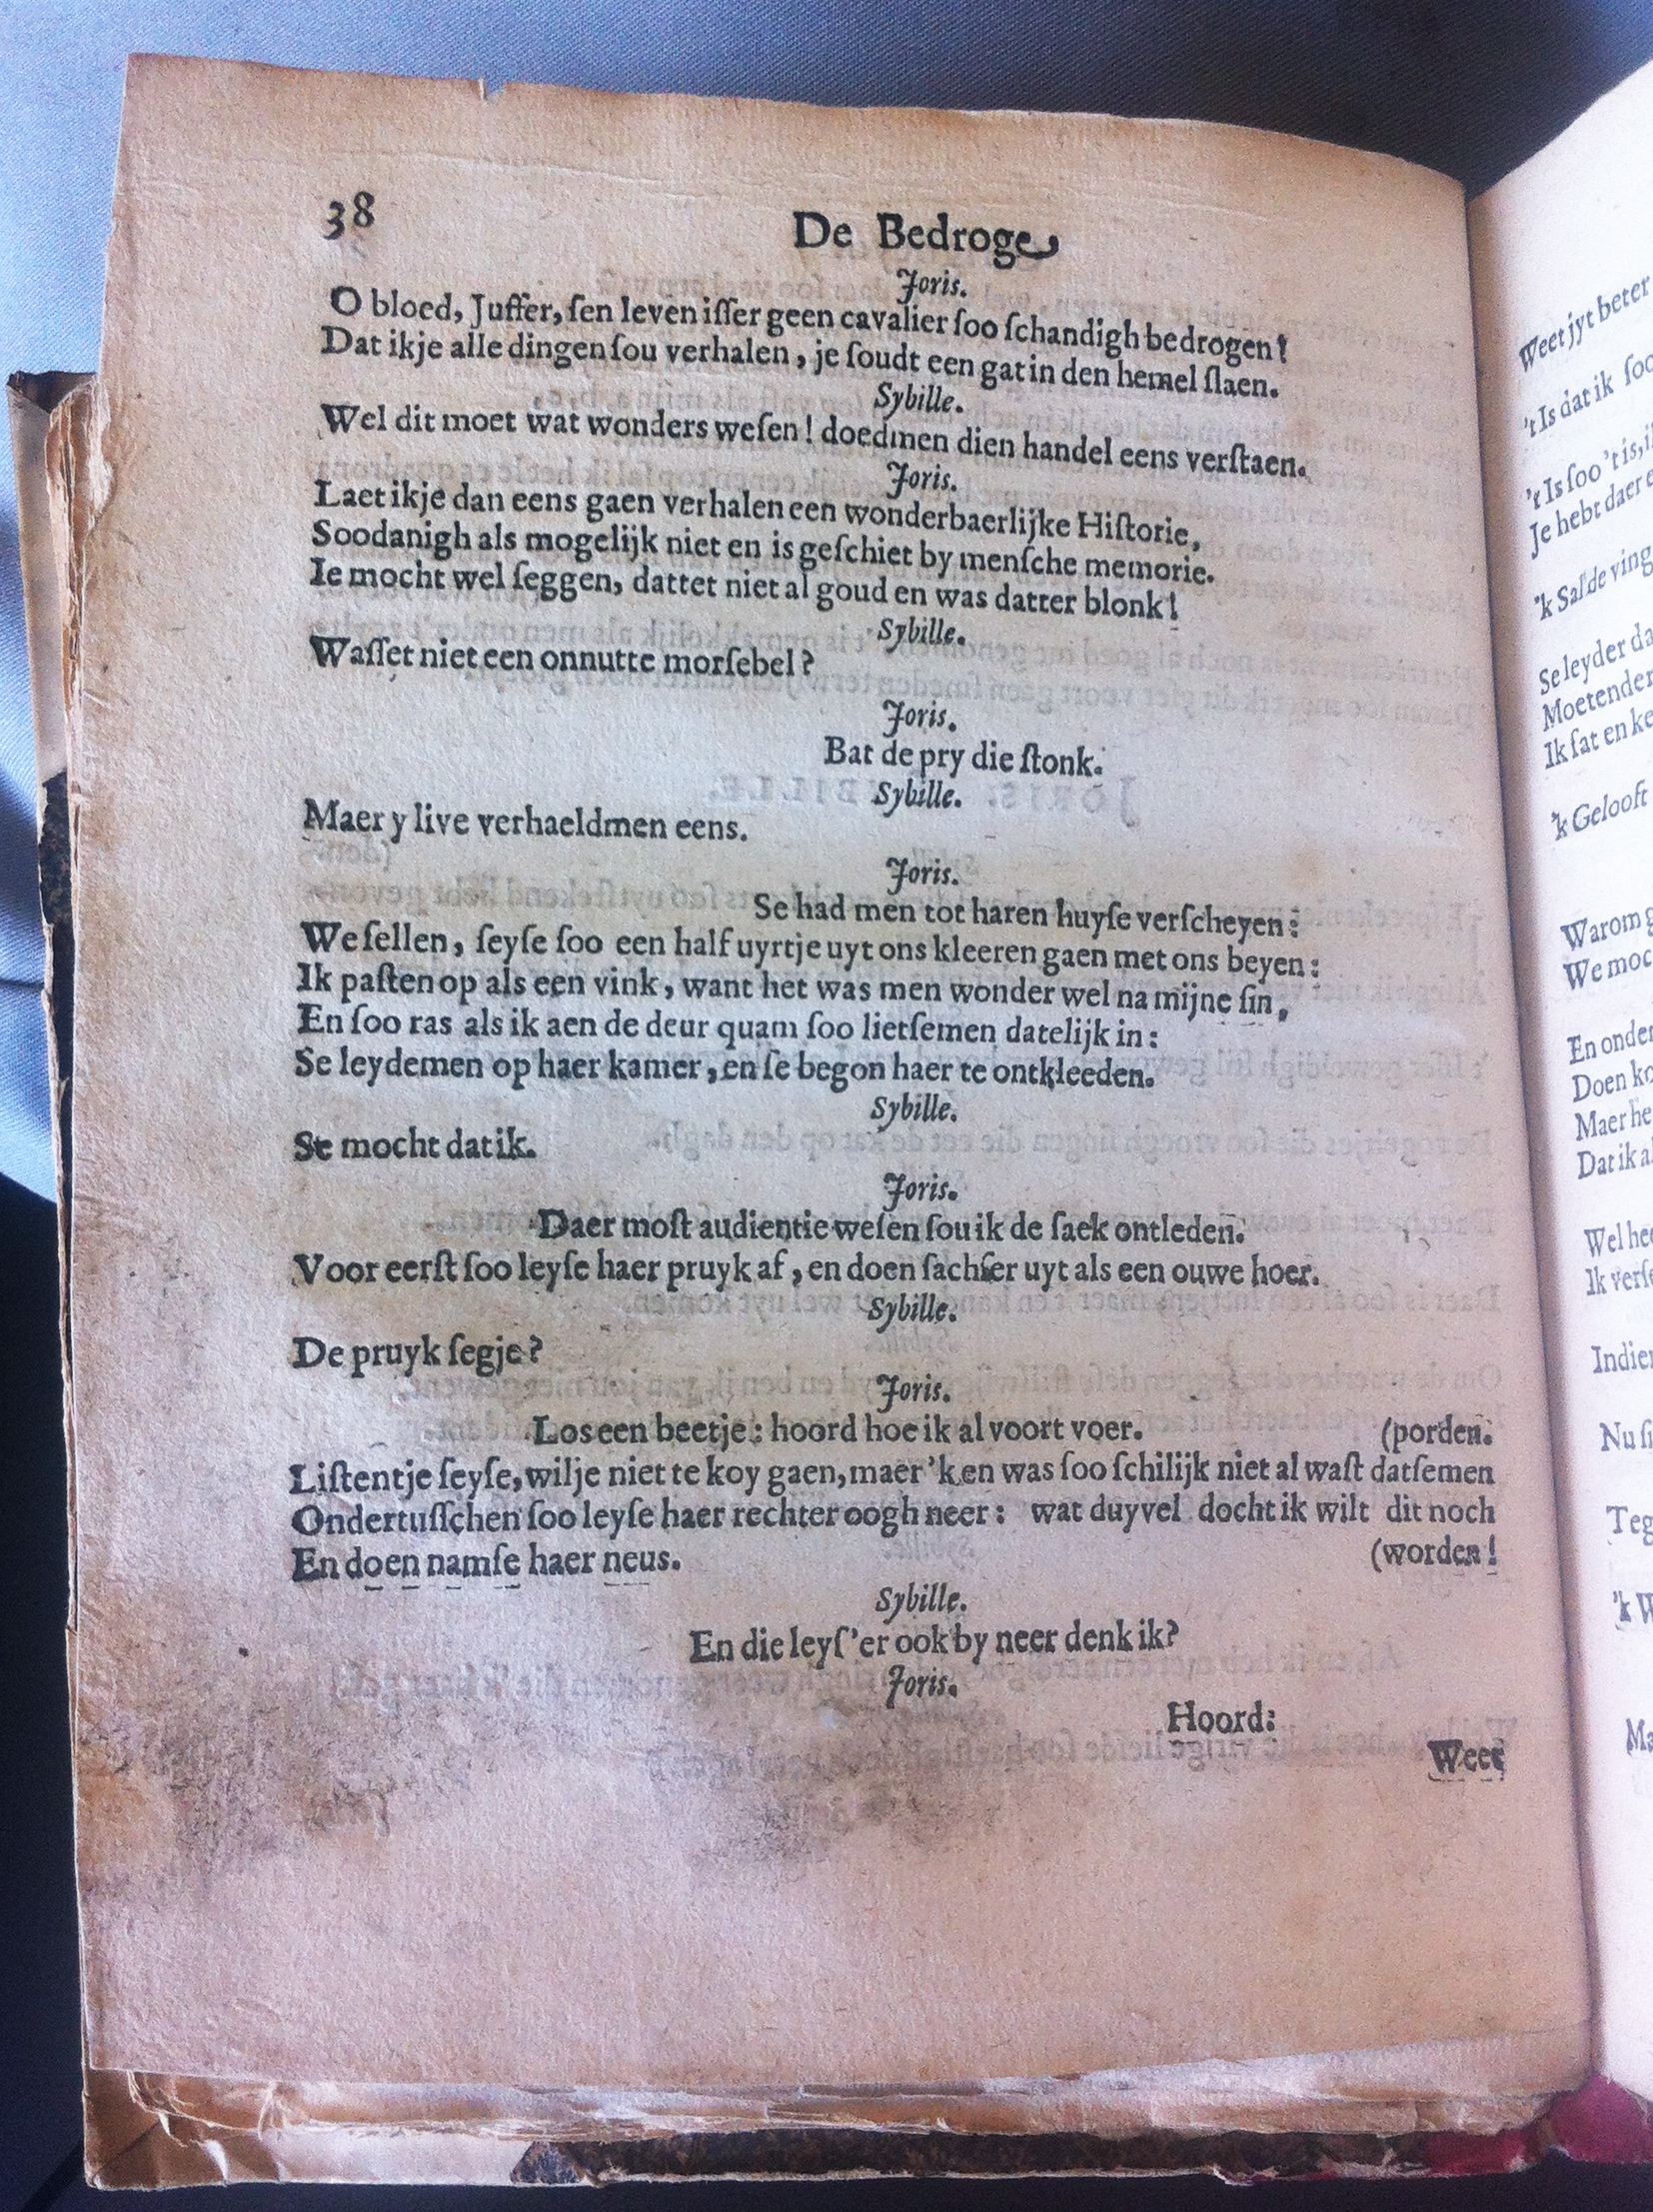 38
De Bedroge
Joris.
O bloed, Juffer, ſen leven iſſer geen cavalier ſoo ſchandigh bedrogen!
Dat ikje alle dingen ſou verhalen, je ſoudt een gat in den hemel ſlaen.
Sybille.
Wel dit moet wat wonders weſen! doedmen dien handel eens verſtaen.
Joris.
Laet ikje dan eens gaen verhalen een wonderbaerlijke Hiſtorie,
Soodanigh als mogelijk niet en is geſchiet by menſche memorie.
Ie mocht wel ſeggen, dattet niet al goud en was datter blonk!
Sybille.
Waſſet niet een onnutte morſebel?
Joris.
Bat de pry die ſtonk.
Sybille.
Maer y live verhaeldmen eens.
Joris.
Se had men tot haren huyſe verſcheyen:
We ſellen, ſeyſe ſoo een half uyrtje uyt ons kleeren gaen met ons beyen:
Ik paſten op als een vink, want het was men wonder wel na mijne ſin,
En ſoo ras als ik aen de deur quam ſoo lietſemen datelijk in:
Se leydemen op haer kamer, en ſe begon haer te ontkleeden.
Sybille.
Se mocht dat ik.
Joris.
Daer moſt audientie weſen ſou ik de ſaek ontleden.
Voor eerſt ſoo leyſe haer pruyk af, en doen ſachſer uyt als een ouwe hoer.
Sybille.
De pruyk ſegje?
Joris.
Los een beetje: hoord hoe ik al voort voer. (porden.
Liſtentje ſeyſe, wilje niet te koy gaen, maer 'k en was ſoo ſchilijk niet al waſt datſemen
Ondertuſſchen ſoo leyſe haer rechter oogh neer: wat duyvel docht ik wilt dit noch
En doen namſe haer neus. (worden!
Sybille.
En die leyſ'er ook by neer denk ik?
Joris.
Hoord:
Weet
Weet jyt beter
't Is dat ik ſoo
't Is ſoo 't is,
Je hebt daer
'k Sal de ving
Se leyder da
Moetender
Ik ſat en ke
'k Gelooft
Warom g
We moc
En onder
Doen ko
Maer he
Dat ik al
Wel hee
Ik verſ
Indien
Nu ſi
Teg
'k W
Ma